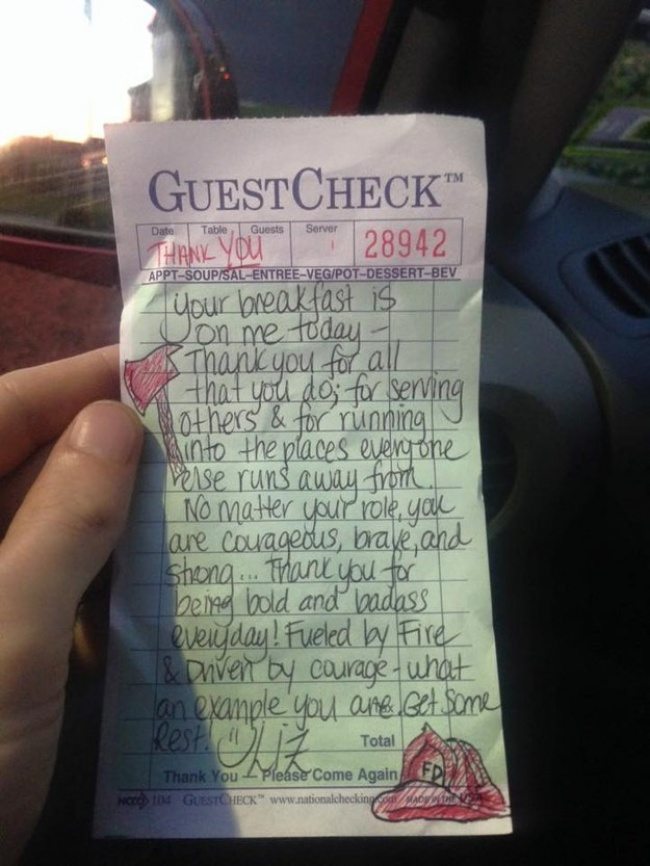 GUESTCHECK™
Date Table Guests Server
THANK YOU 28942
APPT-SOUP/SAL-ENTREE-VEG/POT-DESSERT-BEV
your breakfast is
on me today -
Thank you for all
that you do; for serving
others & for running
into the places everyone
else runs away from.
No matter your role, you
are courageous, brave, and
strong... Thank you for
being bold and badass
everyday! Fueled by Fire
& Driven by courage - what
an example you are. Get Some
Rest! Liz
Total
FD
Thank You Please Come Again
NCCO 104 GUESTCHECK™ www.nationalchecking.com MADE IN THE USA